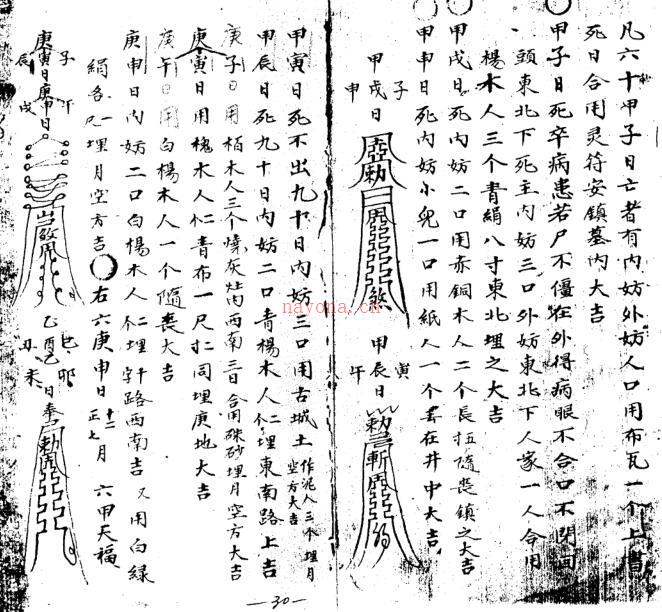 凡六十甲子日亡者有内妨外妨人口用布瓦一个上書
死日合用灵符安鎮墓内大吉
甲子日死卒病患若尸不僵在外得病眼不合口不閉面
頭東北下死主内妨三口外妨東北下人家一人合用
楊木人三个青絹八寸東北埋之大吉
甲戌日死内妨二口用赤銅木人二个長五隨喪鎮之大吉
甲申日死内妨小兒一口用紙人一个丟在井中大吉
甲戌日
子
申
甲辰日
寅
午
甲寅日死不出九十日内妨三口用古城土作泥人三个埋月空方大吉
甲辰日死九十日内妨二口青楊木人二个埋東南路上吉
庚子日用栢木人三个燒灰灶内西南三日合用硃砂埋月空方大吉
庚寅日用槐木人二个青布一尺二寸同埋庚地大吉
庚午日用白楊木人一个隨喪大吉
庚申日内妨二口白楊木人二个埋十字路西南吉又用白綠
絹各一尺埋月空方吉
右六庚申日十二月正七月六甲天福
庚寅日庚申日
子
午
辰
戌
乙酉乙巳日奉
卯
丑
未
—30—
nayona.cn